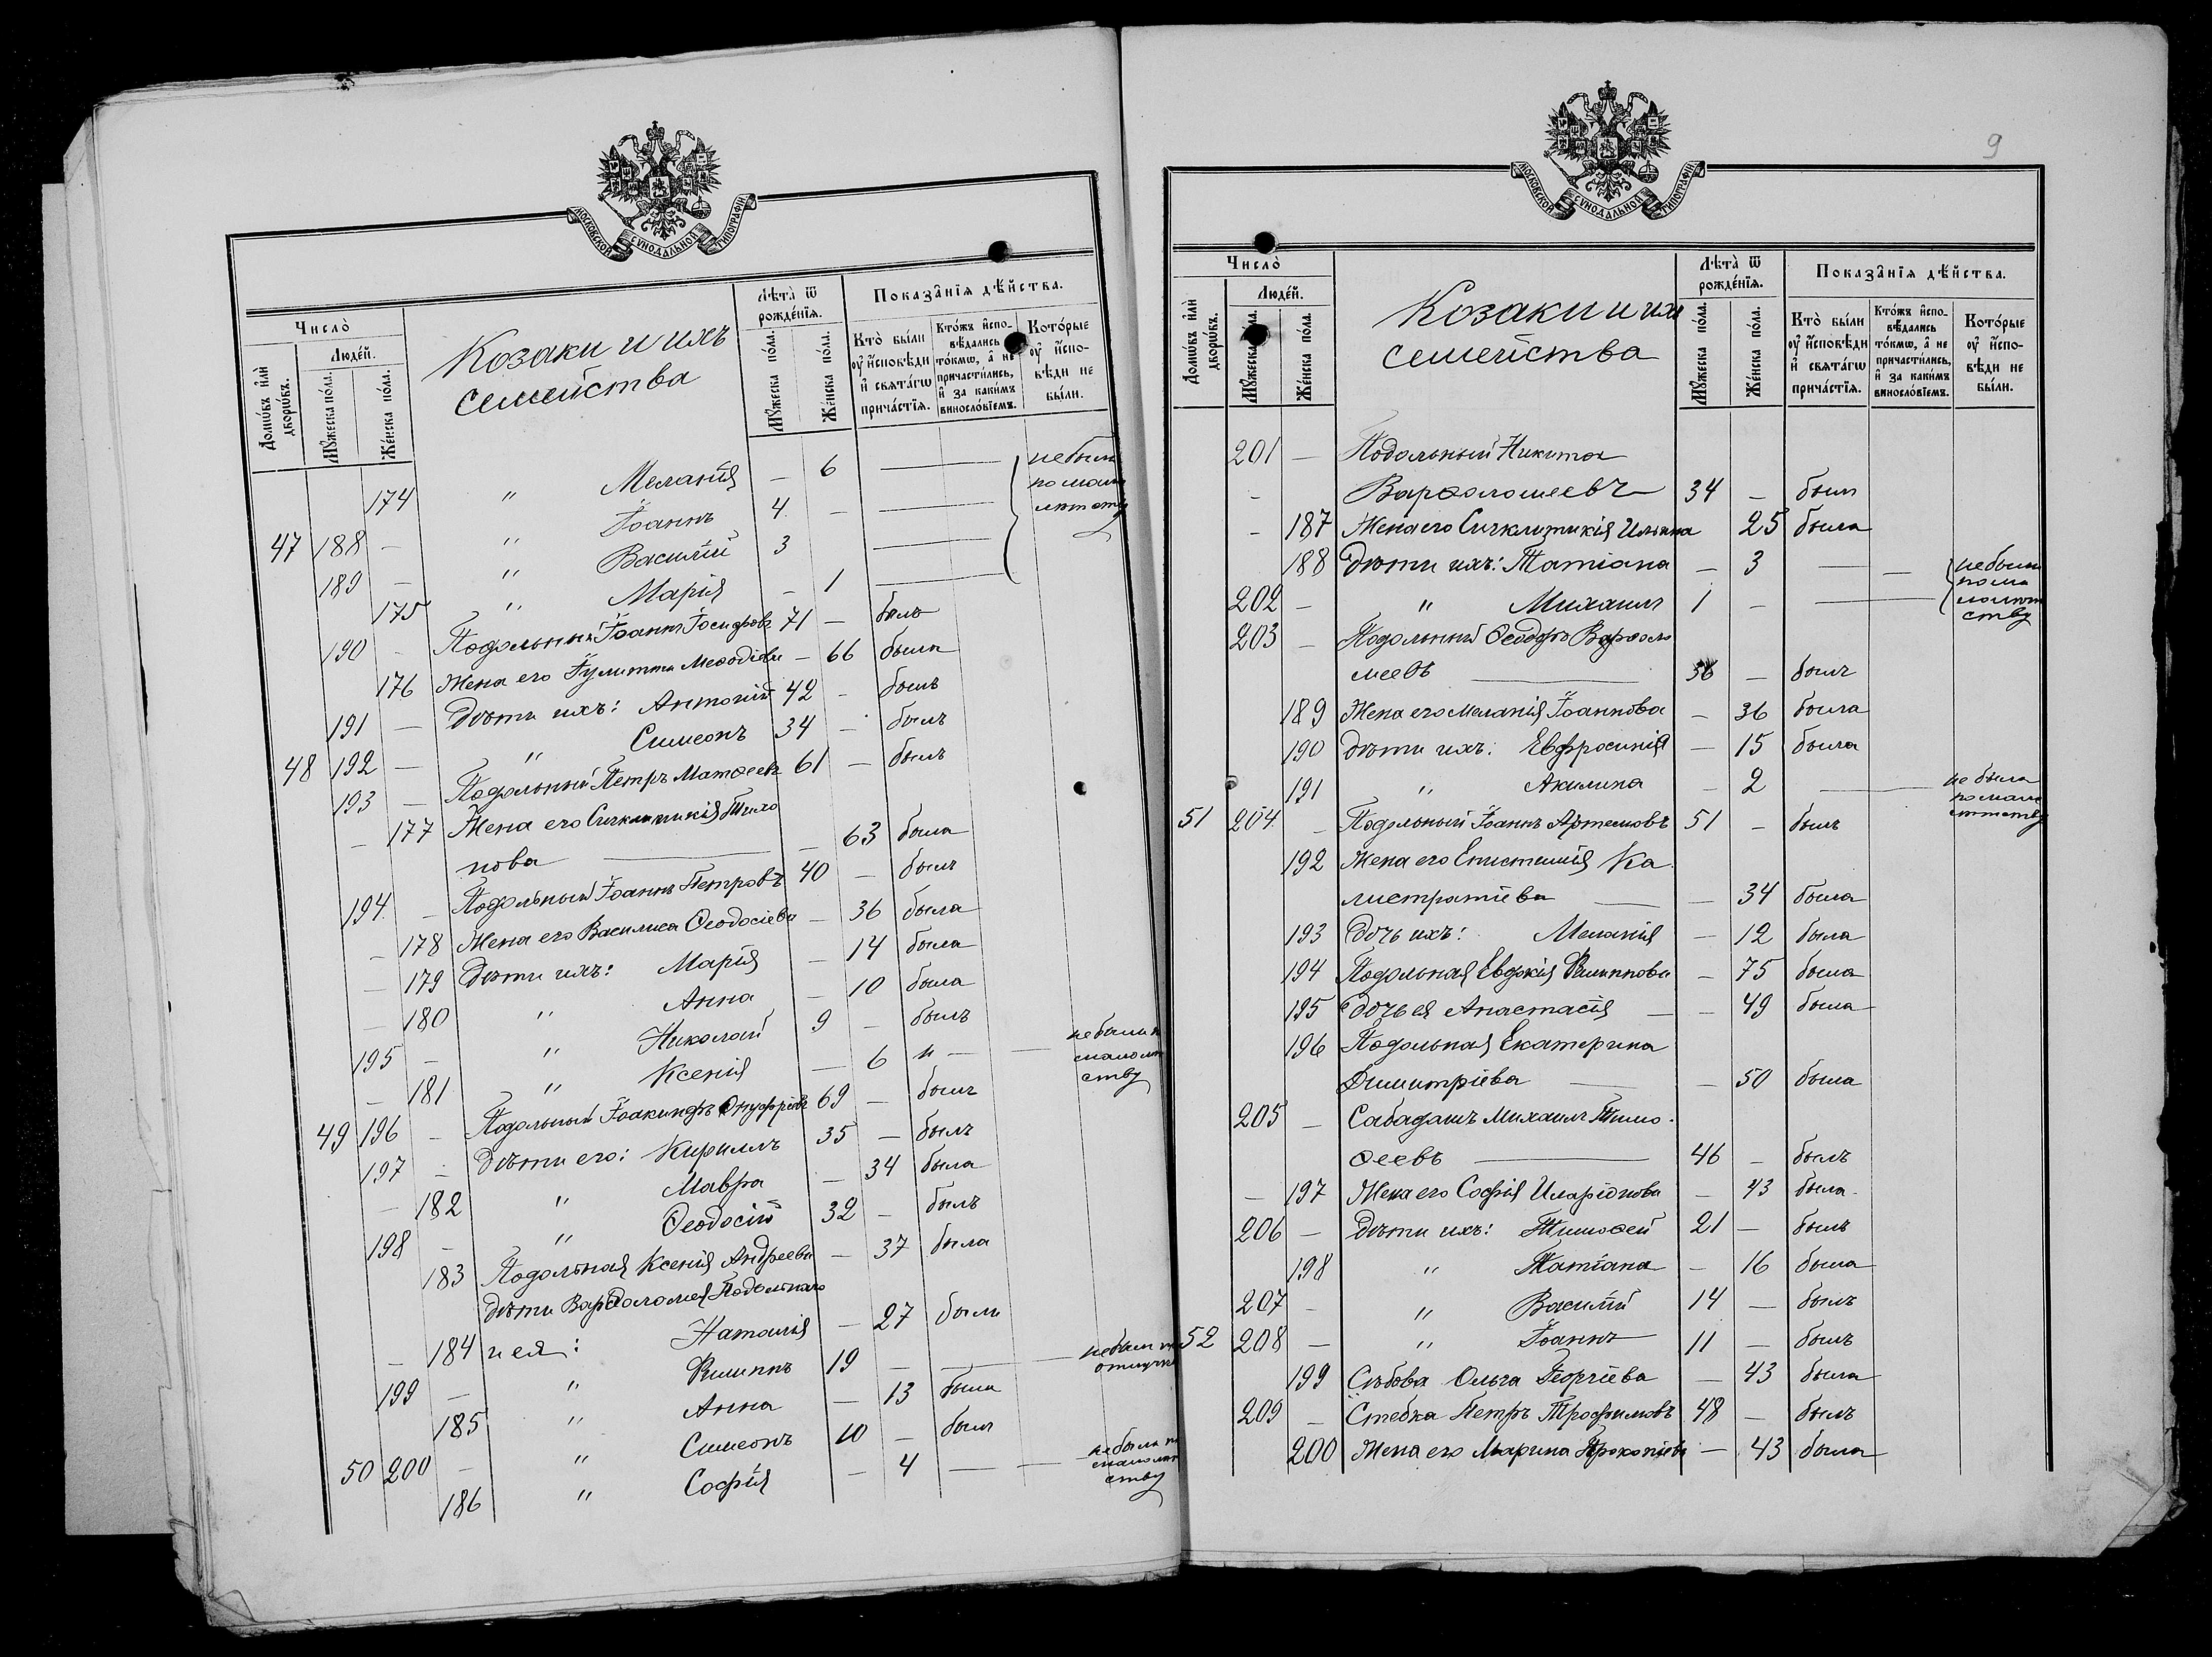 МОСКОВСКОЙ СѴНОДАЛЬНОЙ ТИПОГРАФІИ
Число̀
Домѡ́въ и҆лѝ дворѡ́въ.
Люде́й.
Мꙋ́жеска по́ла.
Же́нска по́ла.
Козаки и ихъ
семейства
Лѣ́та ѿ рожде́нїѧ.
Мꙋ́жеска по́ла.
Же́нска по́ла.
Показа̂нїѧ дѣ́йства.
Кто̀ бы́ли оу҆ и҆́сповѣди и҆ свѧта́гѡ прича́стїѧ.
Кто́жъ и҆спо-вѣ́дались то́кмѡ, а҆ не причасти́лись, и҆ за каки́мъ виносло́вїемъ.
Кото́рые оу҆ и҆́спо-вѣди не бы́ли.
174 " Меланія — 6 — не были
47 188 — " Іоаннъ 4 — — по мало
189 — " Василій 3 — лѣтству
175 " Марія — 1 —
190 — Подольный Іоаннъ Іосифовъ 71 — былъ
176 Жена его Іулитта Меѳодіева — 66 была
191 — Дѣти ихъ: Антоній 42 — былъ
48 192 — " Симеонъ 34 — былъ
193 — Подольный Петръ Матѳеевъ 61 — былъ
— 177 Жена его Сигклитикія
нова — — 63 была
194 — Подольный Іоаннъ Петровъ 40 — былъ
— 178 Жена его Василиса Ѳеодосіева — 36 была
— 179 Дѣти ихъ: Марія — 14 была
— 180 " Анна — 10 была
195 — " Николай 9 — былъ
— 181 " Ксенія — 6 —
ству
49 196 — Подольный Іоакинфъ Онуфріевъ 69 — былъ
197 — Дѣти его: Кириллъ 35 — былъ
— 182 " Мавра — 34 была
198 — " Ѳеодосій 32 — былъ
183 Подольная Ксенія Андреева — 37 была
Дѣти Варѳоломея Подольнаго
— 184 и ея: Наталія — 27 была
199 — " Филиппъ 19 — —
185 " Анна — 13 была
50 200 — " Симеонъ 10 — былъ
186 " София — 4 — —
ству
9
МОСКОВСКОЙ СѴНОДАЛЬНОЙ ТИПОГРАФІИ
Число̀
Домѡ́въ и҆лѝ дворѡ́въ.
Люде́й.
Мꙋ́жеска по́ла.
Же́нска по́ла.
Козаки и ихъ
семейства
Лѣ́та ѿ рожде́нїѧ.
Мꙋ́жеска по́ла.
Же́нска по́ла.
Показа̂нїѧ дѣ́йства.
Кто̀ бы́ли оу҆ и҆́сповѣди и҆ свѧта́гѡ прича́стїѧ.
Кто́жъ и҆спо-вѣ́дались то́кмѡ, а҆ не причасти́лись, и҆ за каки́мъ виносло́вїемъ.
Кото́рые оу҆ и҆́спо-вѣди не бы́ли.
201 — Подольный Никита
- Варѳоломеевъ 34 — былъ
- 187 Жена его Сигклитикія Ильина 25 была
188 Дѣти ихъ: Татіана — 3 — — не были
202 — " Михаилъ 1 — — по мало
203 — Подольный Ѳеодоръ Варѳоло ству
меевъ — 36 — былъ
189 Жена его Меланія Іоаннова — 36 была
190 Дѣти ихъ: Евфросинія — 15 была
191 " Акилина — 2 — не была
51 204 — Подольный Іоаннъ Артемовъ 51 — былъ
192 Жена его Епистимія Ка
листратіева — — 34 была
193 Дочь ихъ: Меланія — 12 была
194 Подольная Евдокія Филиппова — 75 была
195 Дочь ея Анастасія — — 49 была
196 Подольная Екатерина
Димитріева — — 50 была
205 — Сабадашъ Михаилъ Тимо-
ѳеевъ — 46 — былъ
— 197 Жена его Софія Иларіонова — 43 была
206 — Дѣти ихъ: Тимоѳей 21 — былъ
198 " Татіана — 16 была
207 — " Василій 14 — былъ
52 208 — " Іоаннъ 11 — былъ
199 Ольга Георгіева — 43 была
209 — Стебка Петръ Трофимовъ 48 — былъ
200 Жена его Марина Прокопіева — 43 была